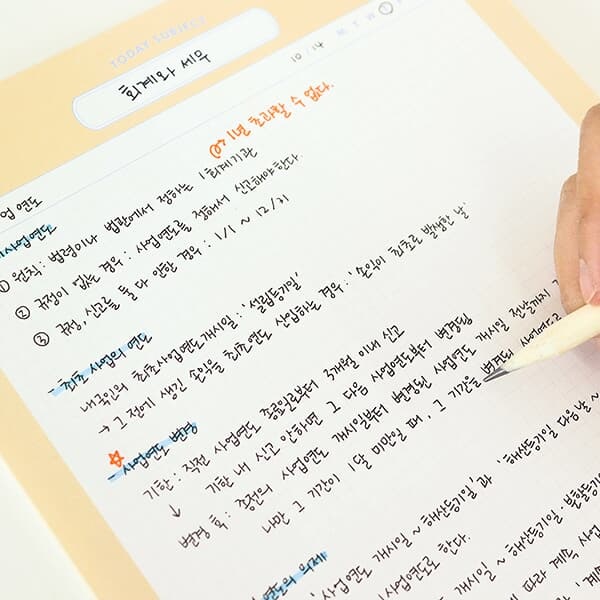 TODAY SUBJECT
회계와 세무
10 / 14 M T W T
1년 초과할 수 없다.
업 연도
사업연도
① 원칙 : 법령이나 법인에서 정하는 1회계기간
② 규정이 없는 경우 : 사업연도를 정해서 신고해야한다.
③ 규정, 신고를 둘 다 안한 경우 : 1/1 ~ 12/31
- 최초 사업의 연도
내국인의 최초사업연도개시일 : '설립등기일'
→ 그 전에 생긴 손익을 최초연도 산입하는 경우 : '손익이 최초로 발생한 날'
- 사업연도 변경
기한 : 직전 사업연도 종료일로부터 3개월 이내 신고
↓ 기한 내 신고 안하면 그 다음 사업연도부터 변경됨
변경 혹 : 종전의 사업연도 개시일부터 변경된 사업연도 개시일 전날까지
나만 그 기간이 1달 미만일 때, 그 기간을 변경된 사업연도로
연도의 의제
'사업연도 개시일 ~ 해산등기일'과 '해산등기일 다음날 ~
1사업연도로 한다.
개시일 ~ 해산등기일 · 분할등기
따라 계속 사업